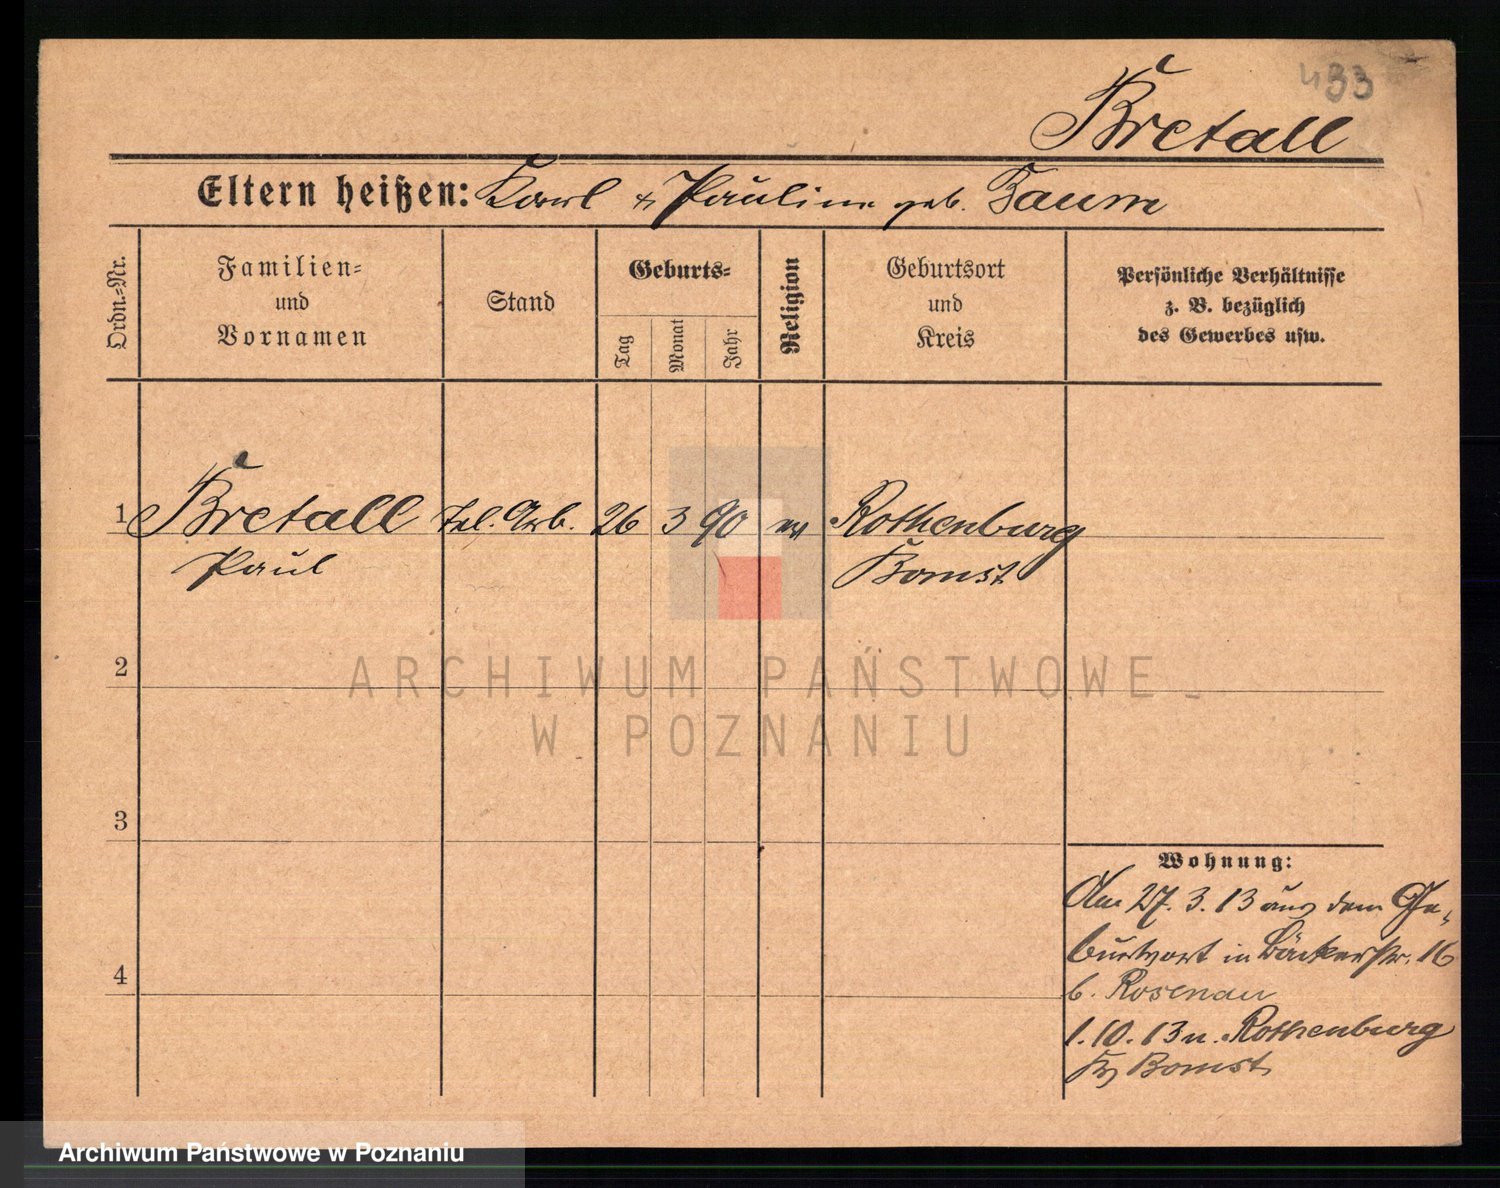 433
Bretall
Eltern heißen: Karl & Pauline geb. Baum
Ordn.-Nr.
Familien- und Vornamen
Stand
Geburts-
Tag
Monat
Jahr
Religion
Geburtsort und Kreis
Persönliche Verhältnisse
z. B. bezüglich
des Gewerbes usw.
1 Bretall Arb. 26 3 90 ev Rothenburg
Paul Bomst
2
3
4
Wohnung:
Am 27. 3. 13 aus dem Ge-
burtsort in Bäckerstr. 16
b. Rosenau
1. 10. 13 n. Rothenburg
Kr Bomst
ARCHIWUM PAŃSTWOWE
W POZNANIU
Archiwum Państwowe w Poznaniu